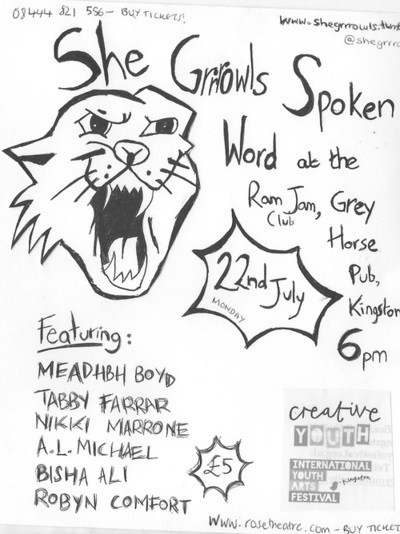 08444 821 556 - BUY TICKETS!
www.shegrrowls.
@shegrrro
She Grrrowls Spoken
Word at the
Ram Jam, Grey
Club
Horse
Pub,
Kingston
22nd July
MONDAY
6pm
Featuring:
MEADHBH BOYD
TABBY FARRAR
NIKKI MARRONE
A.L. MICHAEL
BISHA ALI
ROBYN COMFORT
£5
creative
YOUTH
INTERNATIONAL
YOUTH
ARTS
FESTIVAL
- Kingston
www.rosetheatre.com - BUY TICKET